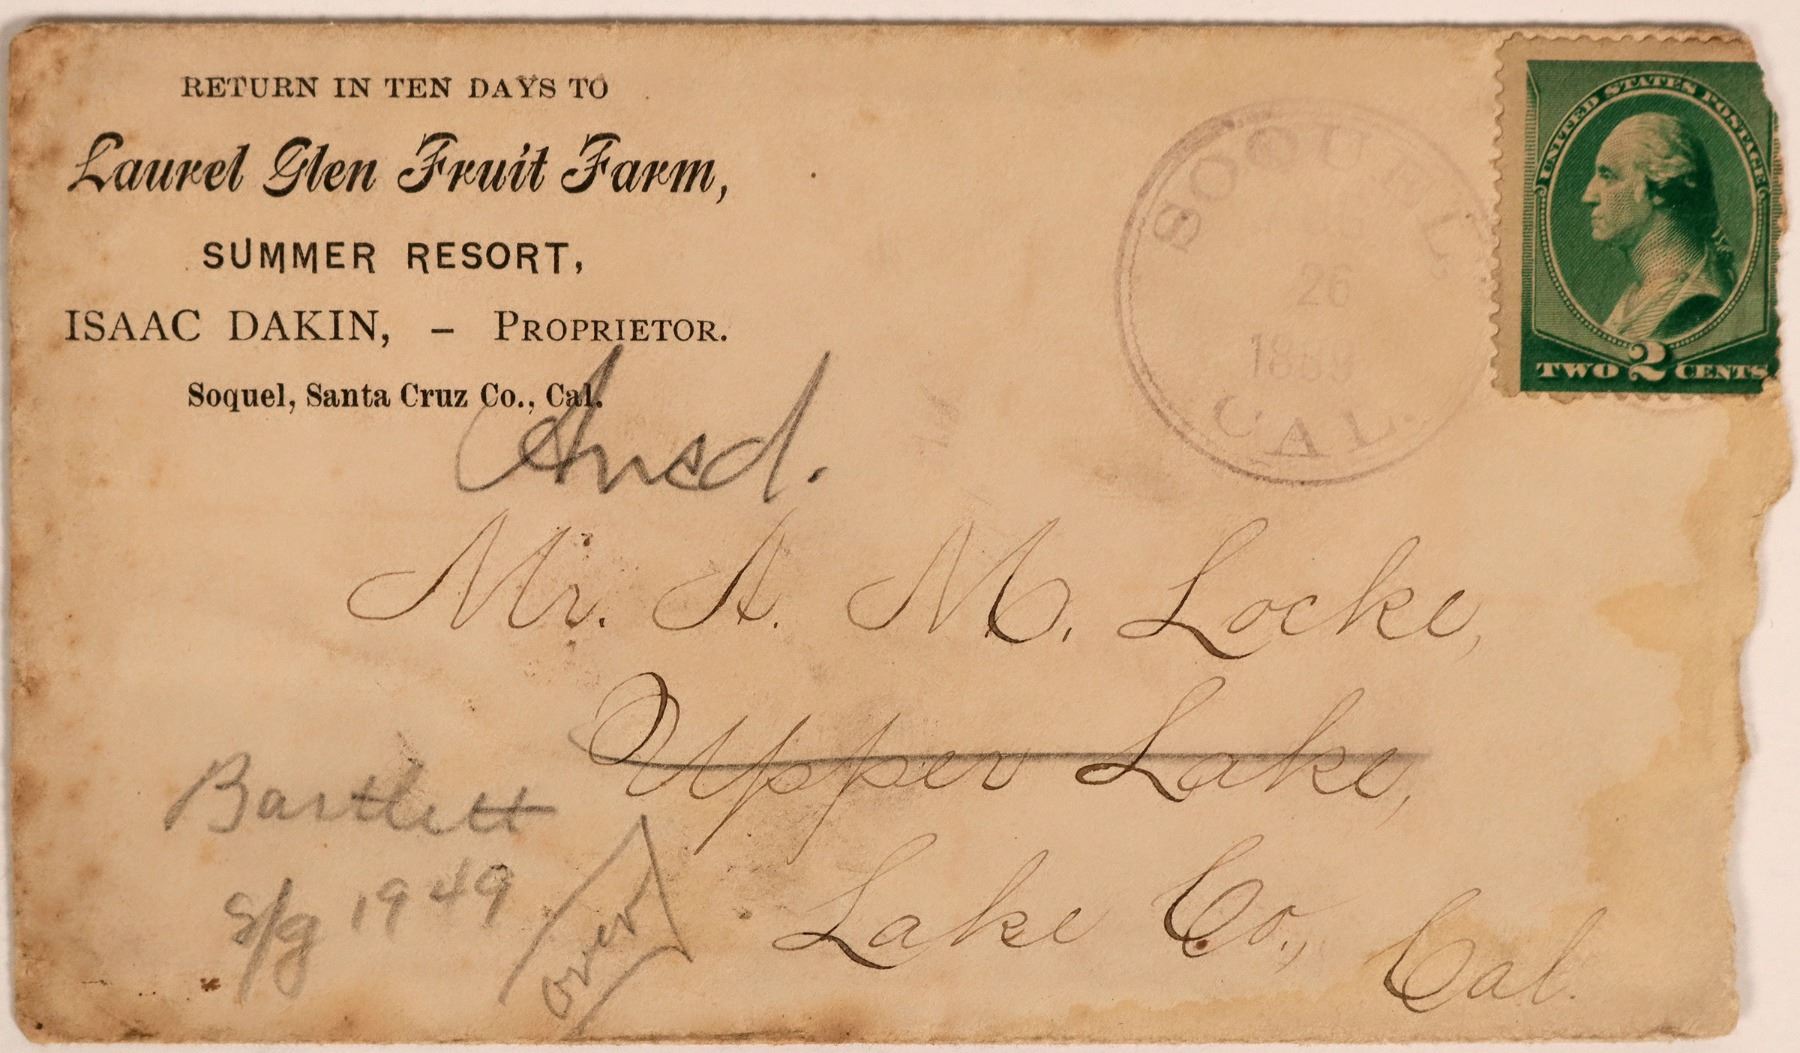 RETURN IN TEN DAYS TO
Laurel Glen Fruit Farm,
SUMMER RESORT,
ISAAC DAKIN, – PROPRIETOR.
Soquel, Santa Cruz Co., Cal.
SOQUEL
26
1889
CAL.
UNITED STATES POSTAGE
TWO 2 CENTS
Ansd.
Mr. A. M. Locke,
Upper Lake,
Lake Co., Cal.
Bartlett
1949
over